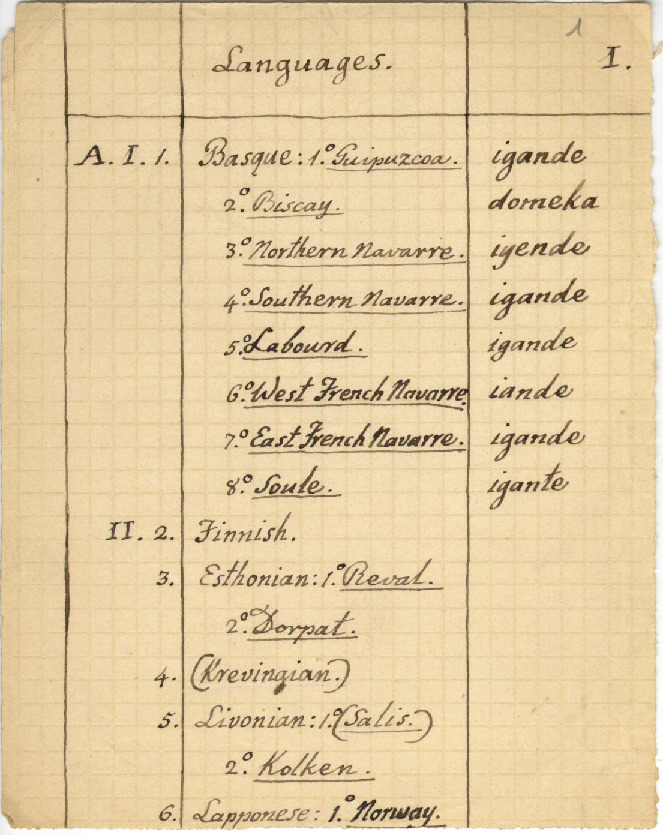 1
Languages. I.
A. I. 1. Basque: 1.º Guipuzcoa. igande
2.º Biscay. domeka
3.º Northern Navarre. igende
4.º Southern Navarre. igande
5.º Labourd. igande
6.º West French Navarre. iande
7.º East French Navarre. igande
8.º Soule. igante
II. 2. Finnish.
3. Esthonian: 1.º Reval.
2.º Dorpat.
4. (Krevingian.)
5. Livonian: 1.º (Salis.)
2.º Kolken.
6. Lapponese: 1.º Norway.